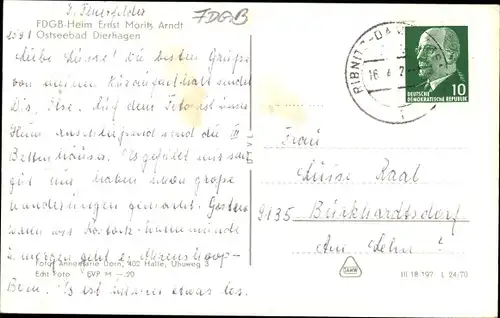 FDGB
FDGB-Heim Ernst Moritz Arndt
Ostseebad Dierhagen
Liebe Luise! Die besten Grüße
von meinem Kuraufenthalt sendet
Dir, Ilse. Auf dem Foto ist unser
Heim anschließend sind die III
Bettenhäuser. Es gefällt mir sehr
gut und haben schon große
Wanderungen gemacht. Gestern
waren wir Rostock-Warnemünde
morgen geht es Ahrenshoop-
Born. Es ist immer etwas los.
Foto: Annemarie Dorn, 402 Halle, Uhuweg 3
Edit Foto EVP M -.20
RIBNITZ-DA
16
DEUTSCHE
DEMOKRATISCHE REPUBLIK
10
Frau
Luise Raal
9135 Burkhardtsdorf
Am
III 18 197 L 24/70